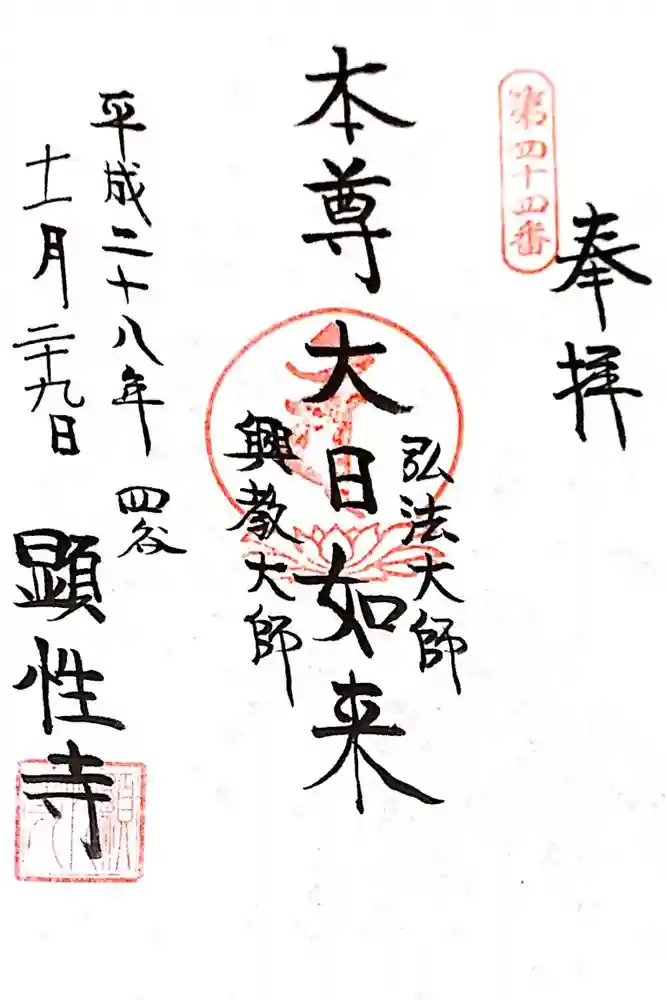 奉拝
第四十四番
弘法大師
本尊大日如来
興教大師
平成二十八年
十一月二十九日
四谷
顕性寺